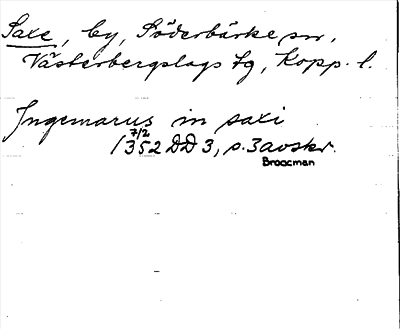 Saxe, by, Söderbärke sn,
Västerbergslags tg, Kopp. l.
Ingemarus in saxi
7/2
1352 DD 3, s. 3 avskr.
Broocman